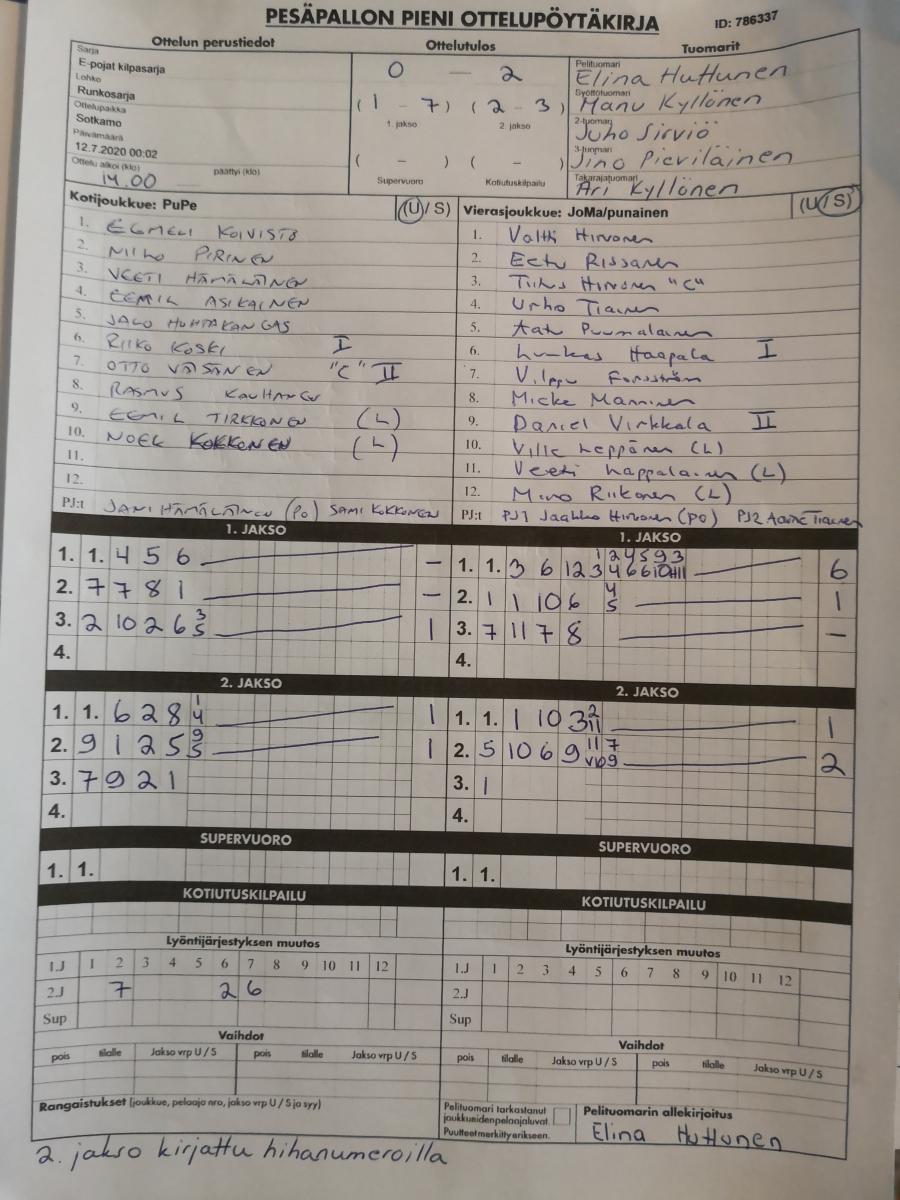 PESÄPALLON PIENI OTTELUPÖYTÄKIRJA ID: 786337
Ottelun perustiedot Ottelutulos Tuomarit
Sarja
E-pojat kilpasarja
Lohko
Runkosarja
Ottelupaikka
Sotkamo
Päivämäärä
12.7.2020 00:02
Ottelu alkoi (klo) päättyi (klo)
14.00
0 — 2
(1 - 7) (2 - 3)
1. jakso 2. jakso
( - ) ( - )
Supervuoro Kotiutuskilpailu
Pelituomari
Elina Huttunen
Syöttötuomari
Manu Kyllönen
2-tuomari
Juho Sirviö
3-tuomari
Jino Pieviläinen
Takarajatuomari
Ari Kyllönen
Kotijoukkue: PuPe (U/S)
1. EEMELI KOIVISTO
2. NIILO PIRINEN
3. VEETI HÄMÄLÄINEN
4. EEMIL ASIKAINEN
5. JALO HUHTAKANGAS
6. RIIKO KOSKI I
7. OTTO VÄISÄNEN "C" II
8. RASMUS KAUHANEN
9. EEMIL TIRKKONEN (L)
10. NOEL KOKKONEN (L)
11.
12.
PJ:t JANI HÄMÄLÄINEN (PO) SAMI KOKKONEN
Vierasjoukkue: JoMa/punainen (U/S)
1. Valtti Hirvonen
2. Eetu Rissanen
3. Hirvonen "C"
4. Urho Tiainen
5. Aatu Puumalainen
6. Luukas Haapala I
7. Vilppu Forsström
8. Micke Manninen
9. Daniel Virkkala II
10. Ville Leppänen (L)
11. Veeti Lappalainen (L)
12. Mino Riikonen (L)
PJ:t PJ1 Jaakko Hirvonen (PO) PJ2 Tiainen
1. JAKSO
1. 1. 4 5 6 —
2. 7 7 8 1 —
3. 2 10 2 6 3 5 1
4.
1. JAKSO
1. 1. 3 6 12 3 1 2 4 5 9 3 4 6 6 10 11 6
2. 1 1 10 6 4 5 1
3. 7 11 7 8 —
4.
2. JAKSO
1. 1. 6 2 8 1 4 1
2. 9 1 2 5 9 5 1
3. 7 9 2 1
4.
2. JAKSO
1. 1. 1 10 3 2 11 1
2. 5 10 6 9 11 7 9 2
3. 1
4.
SUPERVUORO
1. 1.
SUPERVUORO
1. 1.
KOTIUTUSKILPAILU
KOTIUTUSKILPAILU
Lyöntijärjestyksen muutos
1.J 1 2 3 4 5 6 7 8 9 10 11 12
2.J 7 2 6
Sup
Lyöntijärjestyksen muutos
1.J 1 2 3 4 5 6 7 8 9 10 11 12
2.J
Sup
Vaihdot
pois tilalle Jakso vrp U / S pois tilalle Jakso vrp U / S
Vaihdot
pois tilalle Jakso vrp U / S pois tilalle Jakso vrp U / S
Rangaistukset (joukkue, pelaaja nro, jakso vrp U / S ja syy)
Pelituomari tarkastanut
joukkueidenpelaajaluvat.
Puutteetmerkittyerikseen.
Pelituomarin allekirjoitus
Elina Huttunen
2. jakso kirjattu hihanumeroilla